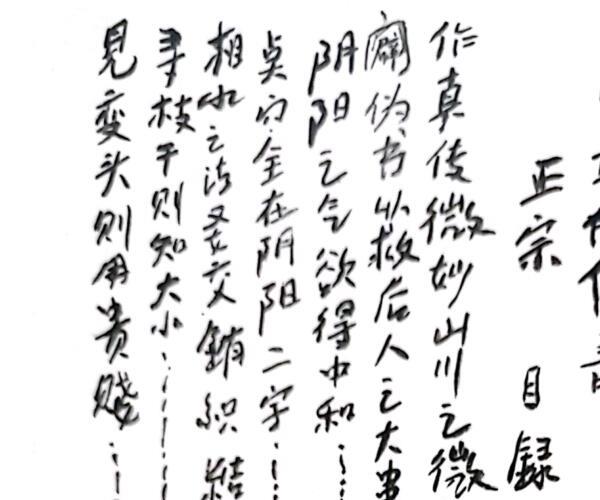 正宗 目録
作真传微妙山川之微
辟伪书以救后人之大
阴阳之气欲得中和……
奠穴全在阴阳二字……
相水之法又要交銷织結
寻枝干则知大小……
見变头则用贵賤……